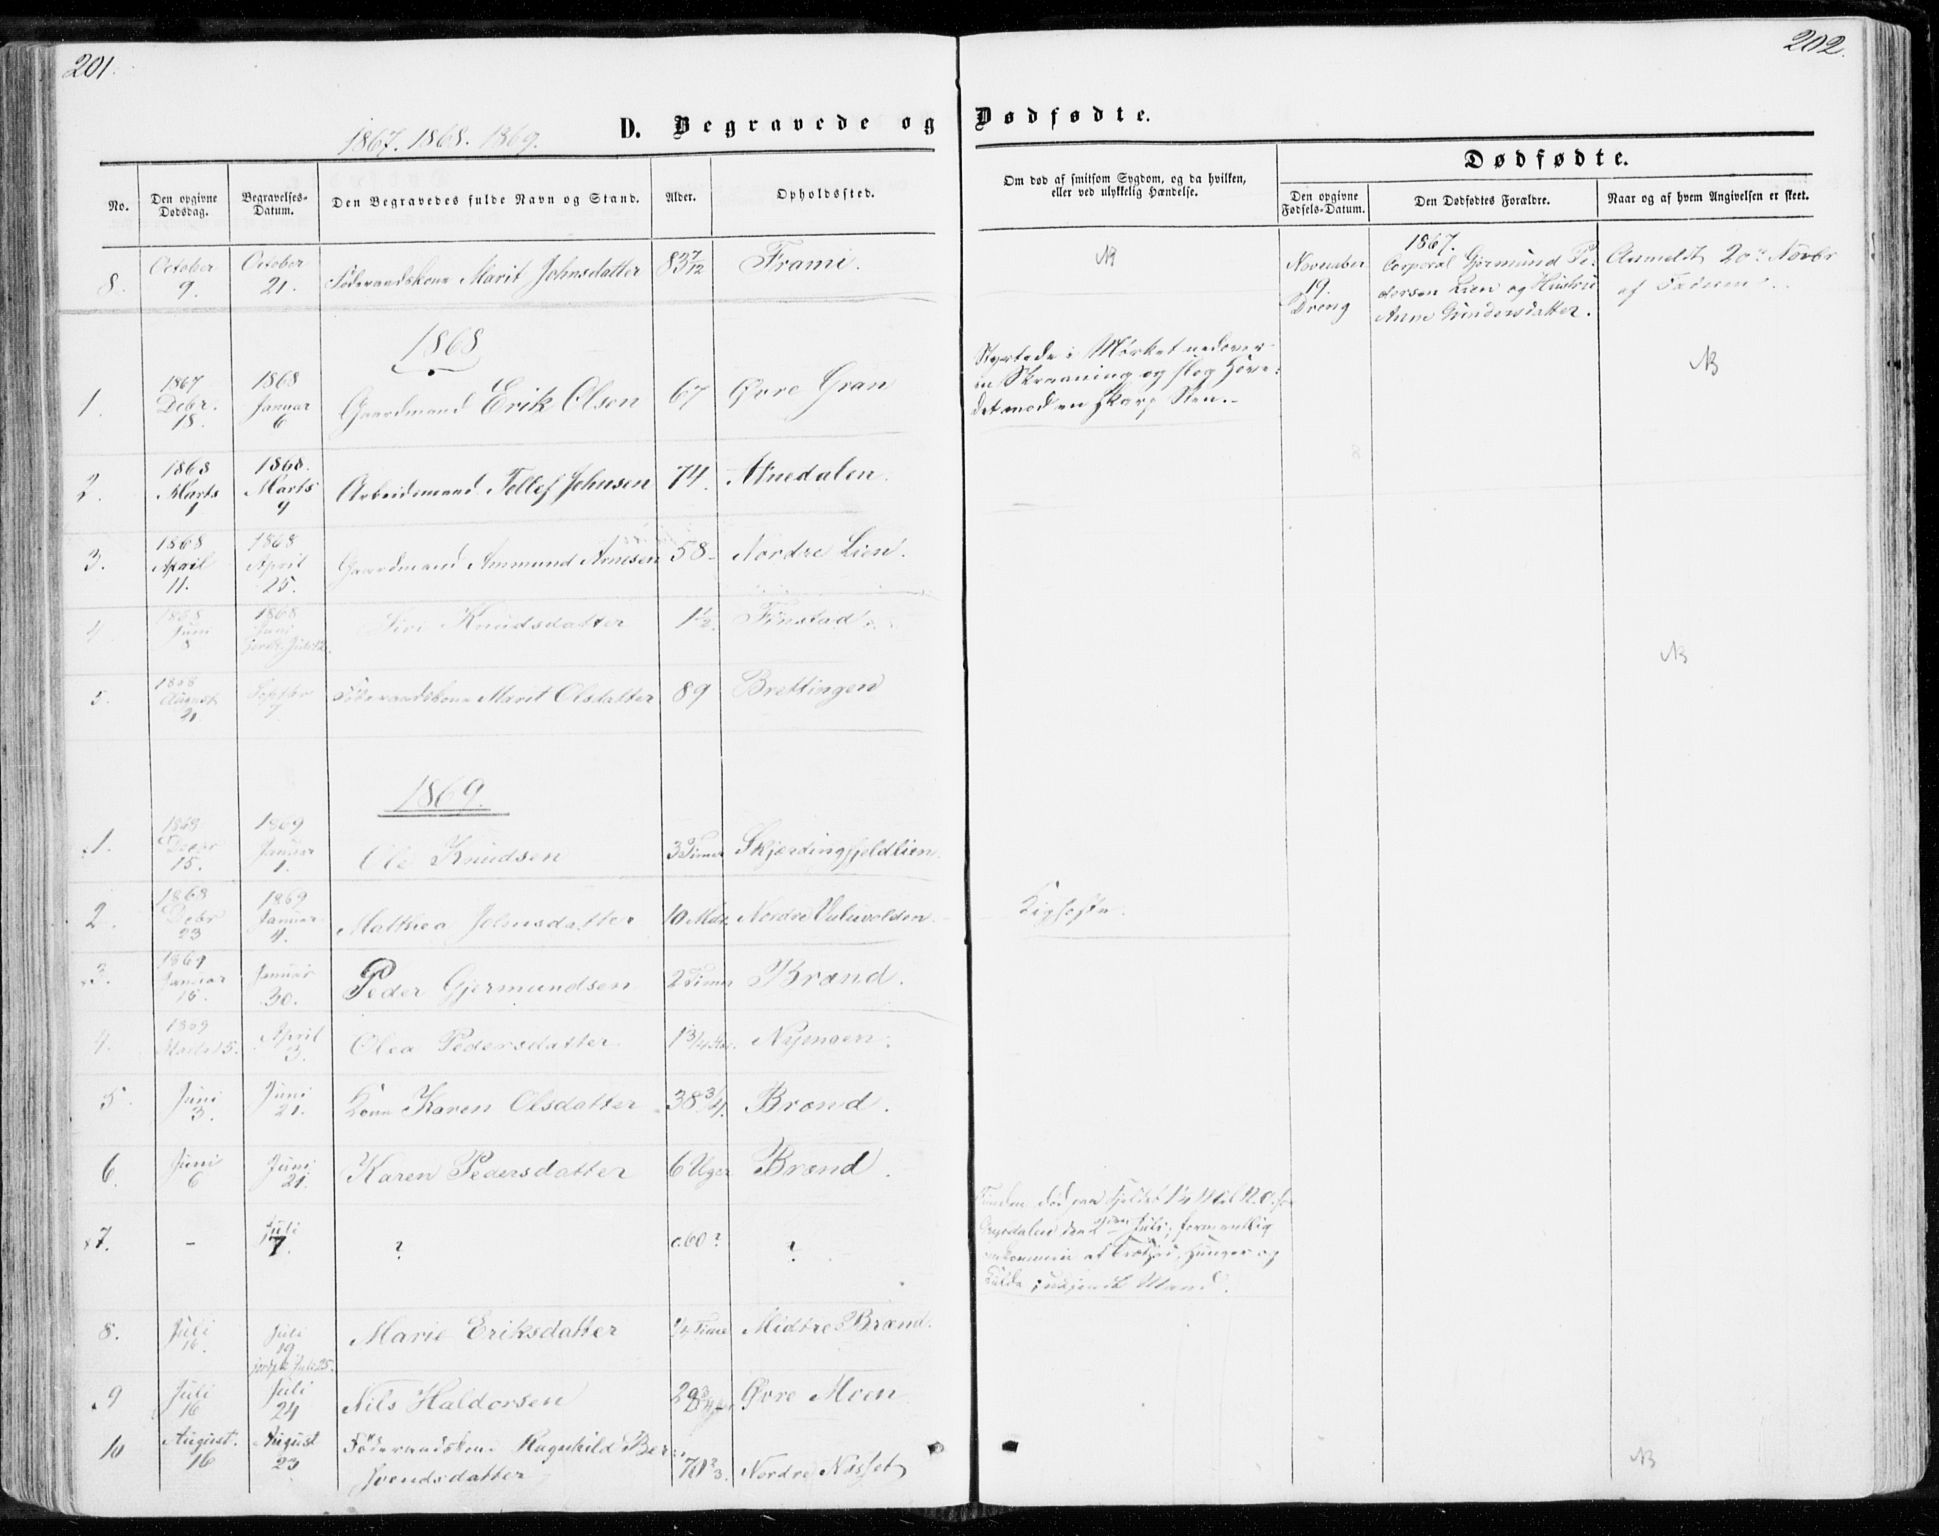 201.
202.
1867. 1868. 1869.
D. Begravede og Dødfødte.
No.
Den opgivne Dødsdag.
Begravelses-Datum.
Den Begravedes fulde Navn og Stand.
Alder.
Opholdssted.
Om død af smitsom Sygdom, og da hvilken,
eller ved ulykkelig Hændelse.
Dødfødte.
Den opgivne Fødsels-Datum.
Den Dødfødtes Forældre.
Naar og af hvem Angivelsen er skeet.
8. October 9. October 21. Føderaadskone Marit Johnsdatter 83 7/12 Frami.
November 19. Dreng
1867.
Corporal Gjermund Pe-
dersen Lien og Hustru
Anne Gundersdatter.
Anmeldt 20de Novbr
af Faderen.
1868
1. 1867 Debr. 18. 1868 Januar 6 Gaardmand Erik Olsen 67 Øvre Gran
Styrtede i Mørket nedover
en Skraaning og slog Hove-
det mod en skarp Sten.
2. 1868 Marts 1 1868. Marts 9 Arbeidsmand Tellef Johnsen 74. Anedalen.
3. 1868 April 11. 1868 April 25. Gaardmand Ammund Arnesen 58. Nordre Lien.
4. 1868 Juni 8 1868 Juni Siri Knudsdatter 1½. Finstad.
5. 1868 August 21 Septbr 7 Føderaadskone Marit Olsdatter 89 Brettingen
1869.
1. 1868 Decbr 15. 1869 Januar 1. Ole Knudsen 3 Timer Skjærdingfjeldlien.
2. 1868 Debr 23 1869 Januar 4. Mathea Johnsdatter 10 Mdr. Nordre Ulvolden.
Kighoste.
3. 1869 Januar 15. Januar 30. Peder Gjermundsen 2 Timer Brænd.
4. 1869 Marts 25. April 3. Olea Pedersdatter 1 3/4 Nymoen.
5. Juni 3. Juni 21. Kone Karen Olsdatter 38 3/4. Brænd.
6. Juni 6 Juni 21. Karen Pedersdatter 6 Uger Brænd.
7. - Juli 7. ? c. 60? ?
Funden død paa Fjeldet
den 2den Juli; formentlig
omkommen af Træthed, Hunger og
Kulde; ukjendt Mand.
8. Juli 16. Juli 19 jordfk. Juli 25. Marie Eriksdatter 1/4 Time Midtre Brænd.
9 Juli 16 Juli 24 Nils Haldorsen 29 Øvre Moen
10 August. 16 August 23 Føderaadskone Ragnhild Ber-
svendsdatter 70 2/3. Nordre Næsset